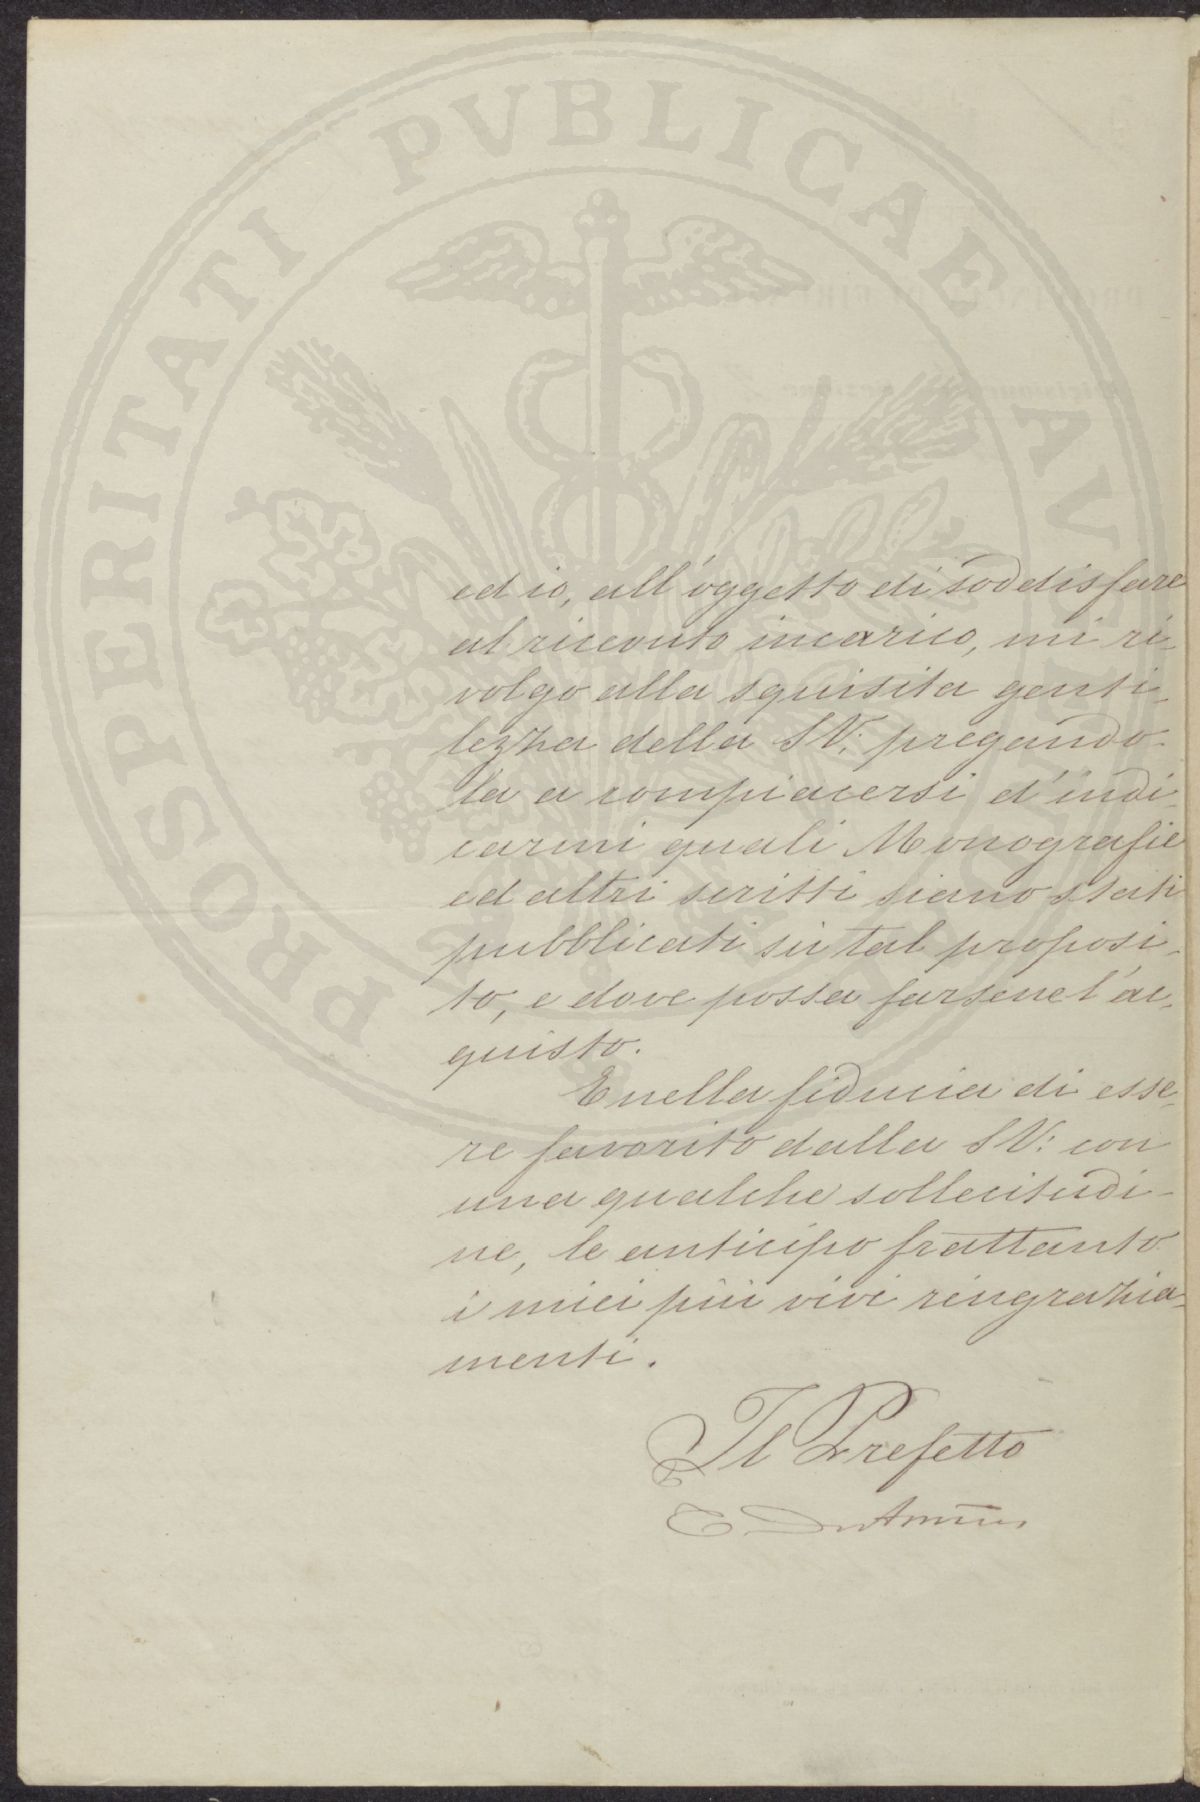 PROSPERITATI PVBLICAE AVGENDAE
ed io, all'oggetto di soddisfare
al ricevuto incarico, mi ri-
volgo alla squisita genti-
lezza della S.V: pregando-
la a compiacersi d'indi-
carmi quali Monografie
ed altri scritti siano stati
pubblicati su tal proposi-
to, e dove possa farsene l'ac-
quisto.
E nella fiducia di esse-
re favorito dalla S.V: con
una qualche sollecitudi-
ne, le anticipo frattanto
i miei più vivi ringrazia-
menti.
Il Prefetto